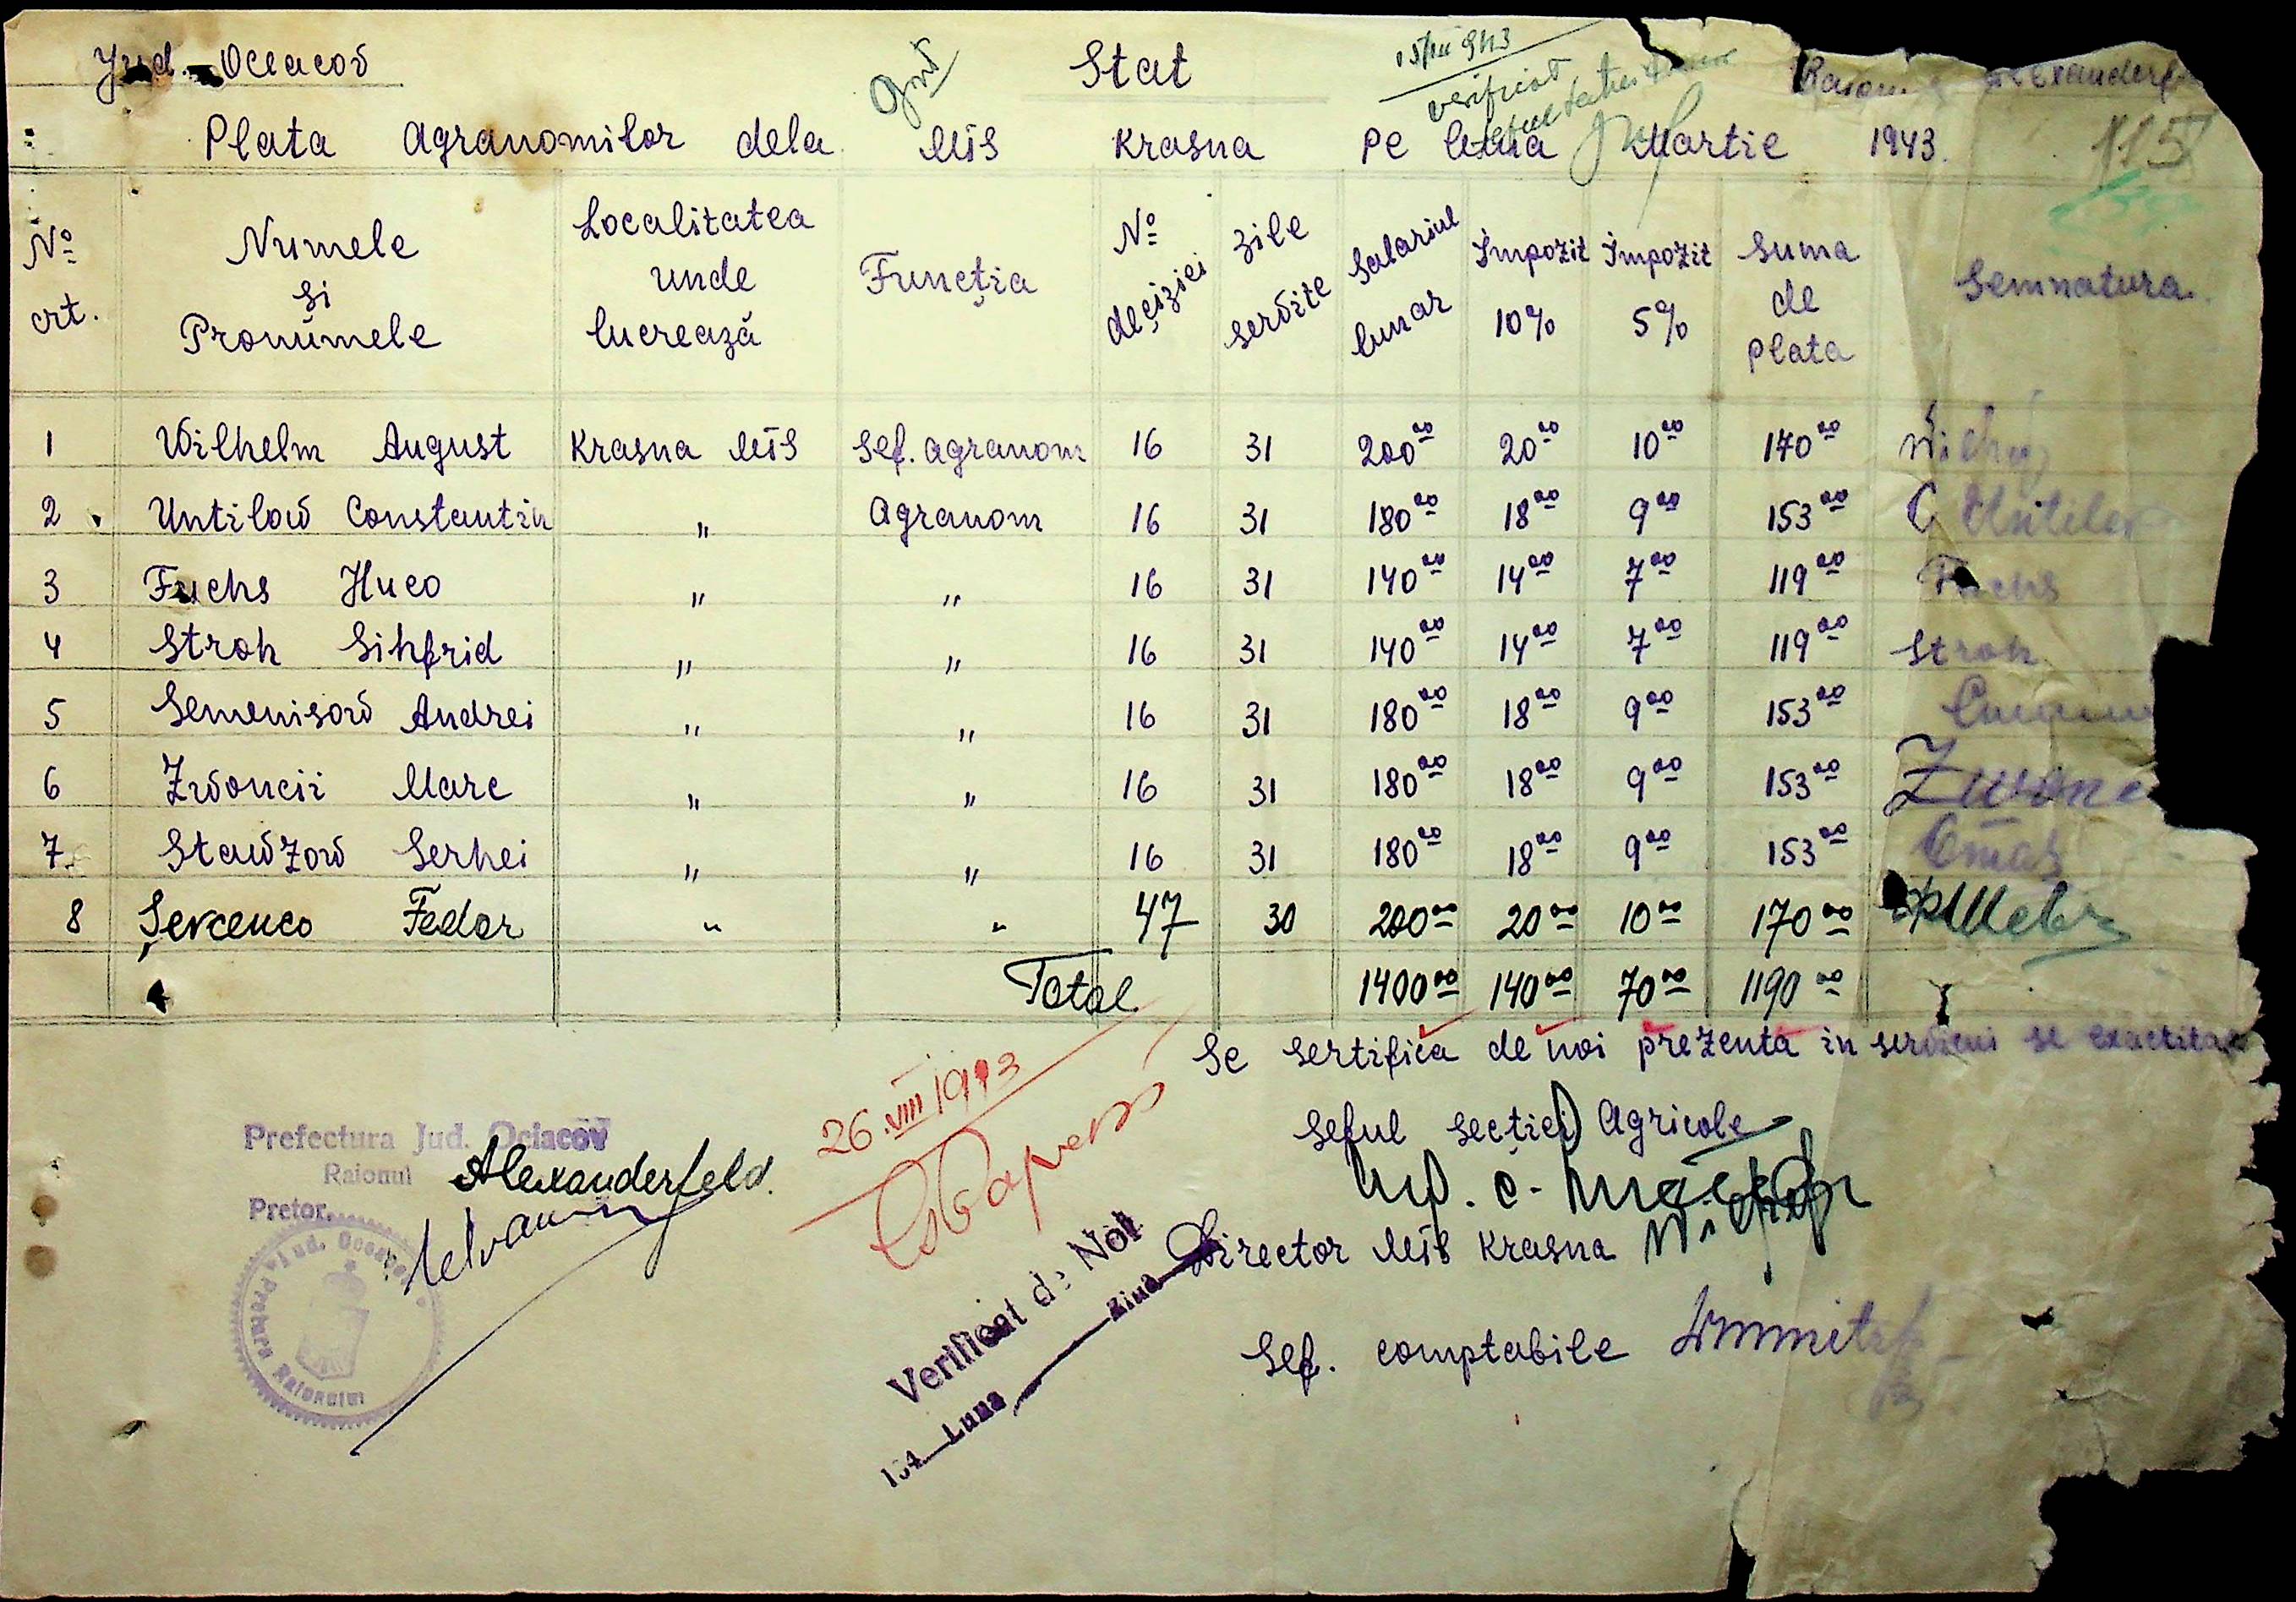 Jud. Oceacov Stat
15/III 943
verificat
Raionul Alexanderf
Plata Agranomilor dela Mis Krasna pe luna Martie 1943.
115
№ crt. Numele si Pronumele Localitatea unde lucrează Funcția № deciziei zile servite Salariul lunar Impozit 10% Impozit 5% Suma de plata Semnatura.
1 Wilhelm August Krasna Mis Sef. agranom 16 31 200 00 20 00 10 00 170 00
2 Untilow Constantin " Agranom 16 31 180 00 18 00 9 00 153 00 C Untilow
3 Fuchs Huco " " 16 31 140 00 14 00 7 00 119 00 Fuchs
4 Stroh Sihfrid " " 16 31 140 00 14 00 7 00 119 00 Stroh
5 Semenisow Andrei " " 16 31 180 00 18 00 9 00 153 00
6 Zwoncii Marc " " 16 31 180 00 18 00 9 00 153 00
7 Stawzow Serhei " " 16 31 180 00 18 00 9 00 153 00
8 Șevcenco Fedor " " 47 30 200 00 20 00 10 00 170 00
Total 1400 00 140 00 70 00 1190 00
Se sertifica de noi prezenta in servieiu se exactita
26.VIII 1943
Seful Sectiei Agricole
Prefectura Jud. Ociacov
Raionul Alexanderfeld.
Pretor,
Jud. Oceacov Pretura Raionului
Director Mis Krasna
Verificat de Noi
194 Luna Ziua
Sef. comptabile